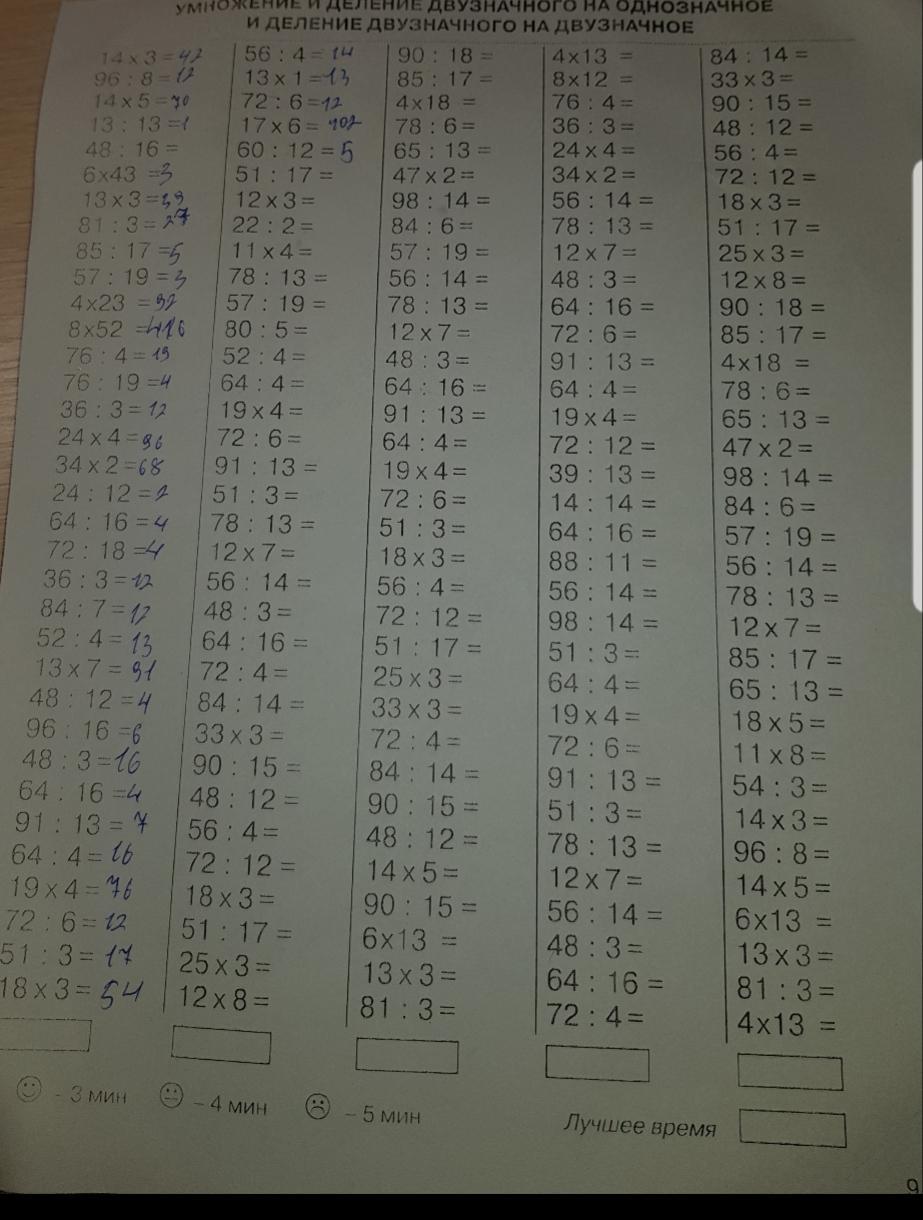 УМНОЖЕНИЕ И ДЕЛЕНИЕ ДВУЗНАЧНОГО НА ОДНОЗНАЧНОЕ
И ДЕЛЕНИЕ ДВУЗНАЧНОГО НА ДВУЗНАЧНОЕ
14 x 3 = 42
96 : 8 = 12
14 x 5 = 70
13 : 13 = 1
48 : 16 =
6x43 = 3
13 x 3 = 39
81 : 3 = 27
85 : 17 = 5
57 : 19 = 3
4x23 = 92
8x52 = 416
76 : 4 = 19
76 : 19 = 4
36 : 3 = 12
24 x 4 = 96
34 x 2 = 68
24 : 12 = 2
64 : 16 = 4
72 : 18 = 4
36 : 3 = 12
84 : 7 = 12
52 : 4 = 13
13 x 7 = 91
48 : 12 = 4
96 : 16 = 6
48 : 3 = 16
64 : 16 = 4
91 : 13 = 7
64 : 4 = 16
19 x 4 = 76
72 : 6 = 12
51 : 3 = 17
18 x 3 = 54
56 : 4 = 14
13 x 1 = 13
72 : 6 = 12
17 x 6 = 102
60 : 12 = 5
51 : 17 =
12 x 3 =
22 : 2 =
11 x 4 =
78 : 13 =
57 : 19 =
80 : 5 =
52 : 4 =
64 : 4 =
19 x 4 =
72 : 6 =
91 : 13 =
51 : 3 =
78 : 13 =
12 x 7 =
56 : 14 =
48 : 3 =
64 : 16 =
72 : 4 =
84 : 14 =
33 x 3 =
90 : 15 =
48 : 12 =
56 : 4 =
72 : 12 =
18 x 3 =
51 : 17 =
25 x 3 =
12 x 8 =
90 : 18 =
85 : 17 =
4x18 =
78 : 6 =
65 : 13 =
47 x 2 =
98 : 14 =
84 : 6 =
57 : 19 =
56 : 14 =
78 : 13 =
12 x 7 =
48 : 3 =
64 : 16 =
91 : 13 =
64 : 4 =
19 x 4 =
72 : 6 =
51 : 3 =
18 x 3 =
56 : 4 =
72 : 12 =
51 : 17 =
25 x 3 =
33 x 3 =
72 : 4 =
84 : 14 =
90 : 15 =
48 : 12 =
14 x 5 =
90 : 15 =
6x13 =
13 x 3 =
81 : 3 =
4x13 =
8x12 =
76 : 4 =
36 : 3 =
24 x 4 =
34 x 2 =
56 : 14 =
78 : 13 =
12 x 7 =
48 : 3 =
64 : 16 =
72 : 6 =
91 : 13 =
64 : 4 =
19 x 4 =
72 : 12 =
39 : 13 =
14 : 14 =
64 : 16 =
88 : 11 =
56 : 14 =
98 : 14 =
51 : 3 =
64 : 4 =
19 x 4 =
72 : 6 =
91 : 13 =
51 : 3 =
78 : 13 =
12 x 7 =
56 : 14 =
48 : 3 =
64 : 16 =
72 : 4 =
84 : 14 =
33 x 3 =
90 : 15 =
48 : 12 =
56 : 4 =
72 : 12 =
18 x 3 =
51 : 17 =
25 x 3 =
12 x 8 =
90 : 18 =
85 : 17 =
4x18 =
78 : 6 =
65 : 13 =
47 x 2 =
98 : 14 =
84 : 6 =
57 : 19 =
56 : 14 =
78 : 13 =
12 x 7 =
85 : 17 =
65 : 13 =
18 x 5 =
11 x 8 =
54 : 3 =
14 x 3 =
96 : 8 =
14 x 5 =
6x13 =
13 x 3 =
81 : 3 =
4x13 =
- 3 мин – 4 мин – 5 мин
Лучшее время
9